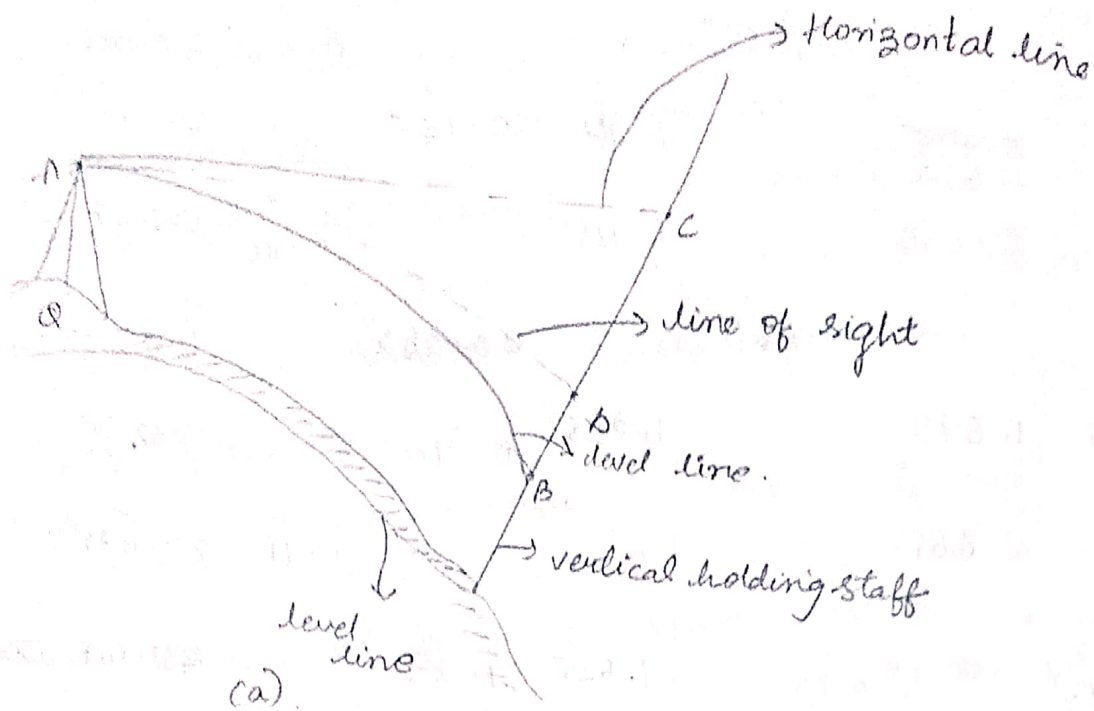 Horizontal line
A
C
Q
line of sight
D
level line.
B
vertical holding staff
level
line
(a)